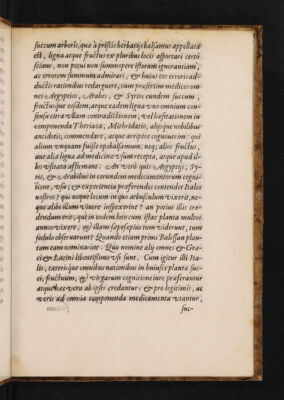 succum arboris, qua à priscis herbarijs balsamus appellatæ
est, ligna atque fructus ex pluribus locis asportari certò
sciam, non possum non summopere istorum ignorantiam,
ac errorem summum admirari, & huius eos erroris ad-
ductis rationibus redarguere, cum præsertim medicos om-
nes Aegyptios, Arabes, & Syros eundem succum,
fructusque eosdem, atque eadem ligna vno omnium con-
sensu citra ullam contradictionem, vel hæsitationem in
componenda Theriaca, Mithridatio, alijsque nobilibus
antidotis, commendare, atque arripere cognouerim: qui
alium vnquam fuisse opobalsamum, neq; alios fructus,
aut alia ligna ad medicinæ vsum recepta, atque apud il-
los vsitata affirmant. An verò quis Aegyptijs, Sy-
ris, & Arabibus in eorundem medicamentorum cogni-
tione, vsu, & experientia præferendos contendet Italos
nostros? qui neque locum in quo arbusculum vixerit, ne-
que alibi illum viuere inspexerint? an potius illis cre-
dendum erit, qui in eodem loco cum istac planta multos
annos vixere, & illam sæpesæpius tum viderunt, tum
sedulo obseruarunt? Quando etiam primi Balessan plan-
tam eam nominarint. Quo nomine alij omnes & Græ-
ci & Latini libentissime vsi sunt. Cum igitur illi Ita-
lis, cæterisque omnibus nationibus in huiusce plantæ suc-
ci, fructuum, & virgarum cognitione iure præferantur
atque hæc vera ab ipsis credantur: & pro legitimis, ac
veris ad omnia componenda medicamenta vtantur,
suc-